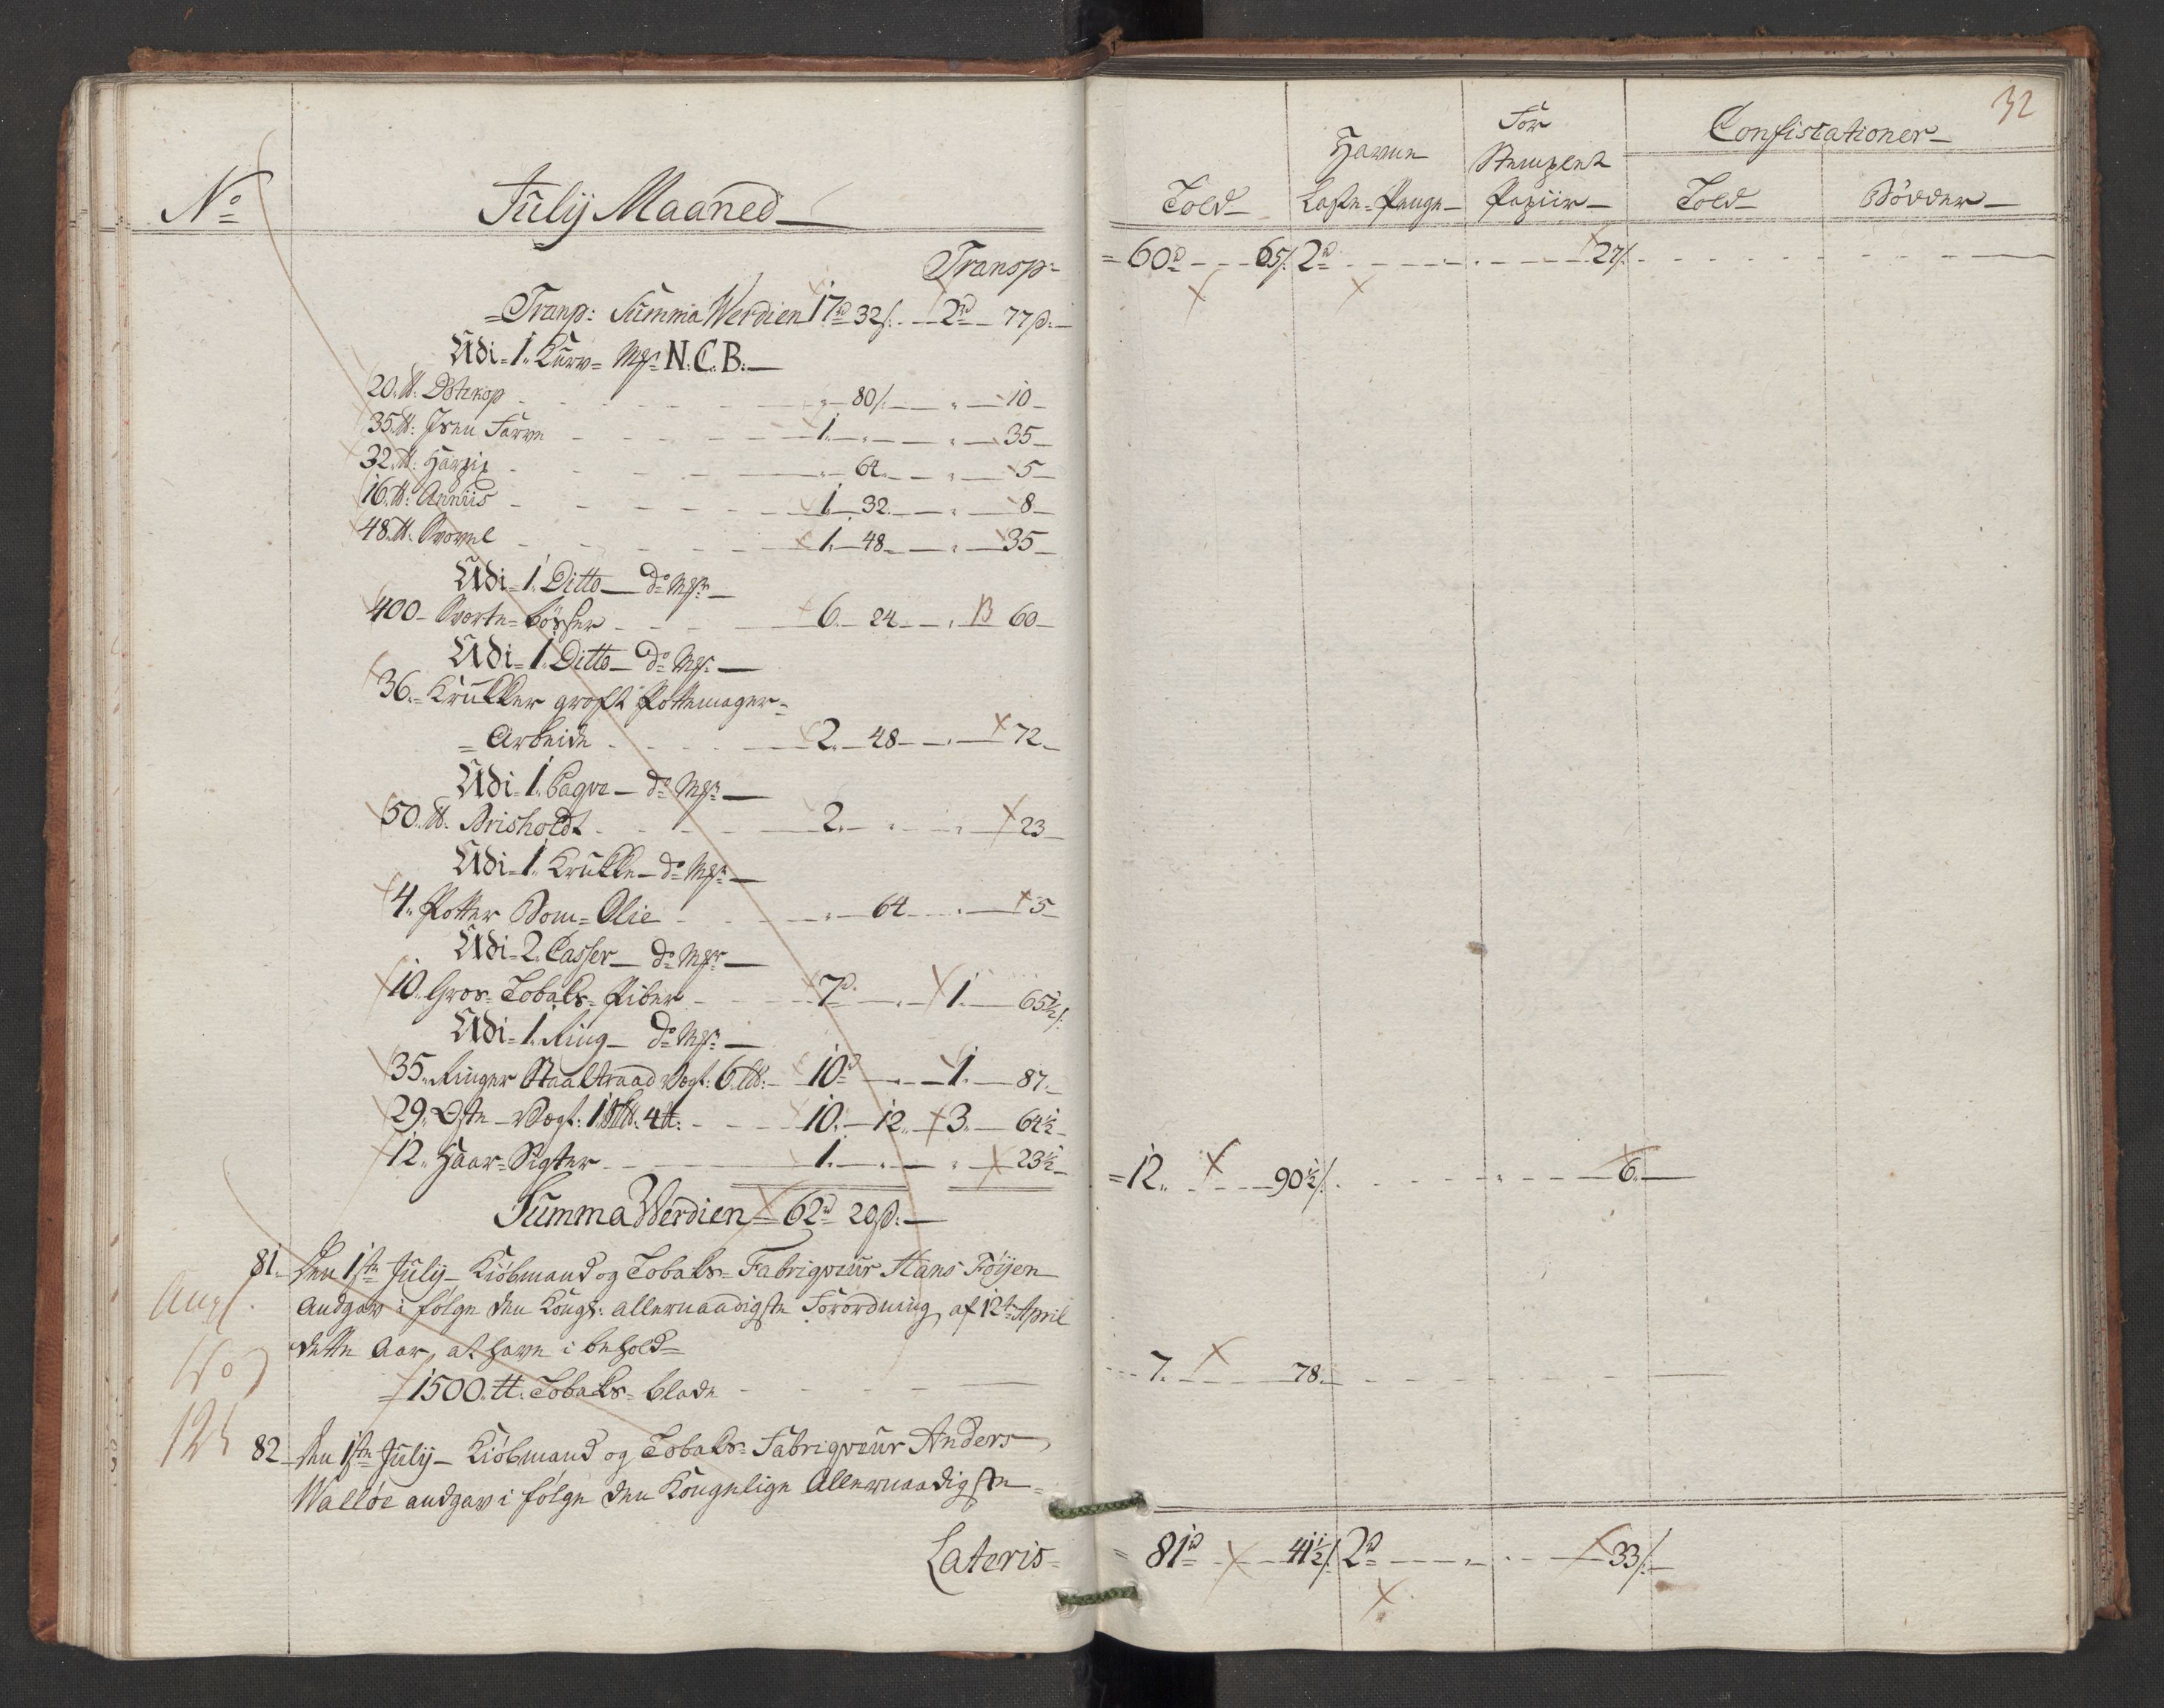 No
July Maaned
Transp:
Tranp: Summa Werdien 17rd 32s. 2rd 77s.
Udi 1. Kurv Mrk N.C.B.
20. ℔. 80s. 10
35. ℔. Jern Farve 1. 35
32. ℔. Harpix 64. 5
16. ℔. Anniis 1. 32. 8
48. ℔. Svovel 1. 48. 35
Udi 1. Ditto do Mrk
400 Svarte bösser 6. 24. B 60
Udi 1. Ditto do Mrk
36. Krukker groft Pottemager
Arbeide 2. 48. 72
Udi 1. Pagve do Mrk
50. ℔. Brisholdt 2. 23
Udi 1. Krukke do Mrk
4. Potter Bom-Olie 64 5
Udi 2. Casser do Mrk
10. Gros Tobaks-Piber 7rd 1. 65½s.
Udi 1. Ring do Mrk
35. Ringer Staaltraad Vegt: 6. 10rd 1. 87.
29. Oste Vegt: 4℔. 10. 12. 3. 64½
12. Haar-Sigter 1. 23½
Summa Werdien 62rd 20s.
81. Den 1ste July Kiöbmand og Tobaks-Fabriqveur Hans Föyen
Angl.
andgav i fölge den Kongl: allernaadigste Forordning af 12te April
dette Aar, at have i behold
No
1500. ℔. Tobaks-blade
125
82 Den 1ste July Kiöbmand og Tobaks-Fabriqveur Anders
Walløe andgav i fölge den Kongelige Allernaadigste
Lateris
32
Told
Havne
Laste-Penge
For
Stemplet
Papiir
Confiscationer
Told
Bödder
60rd 65s. 2rd 27s.
12. 90½s. 6.
7. 78.
81rd 41½s. 2rd 33s.